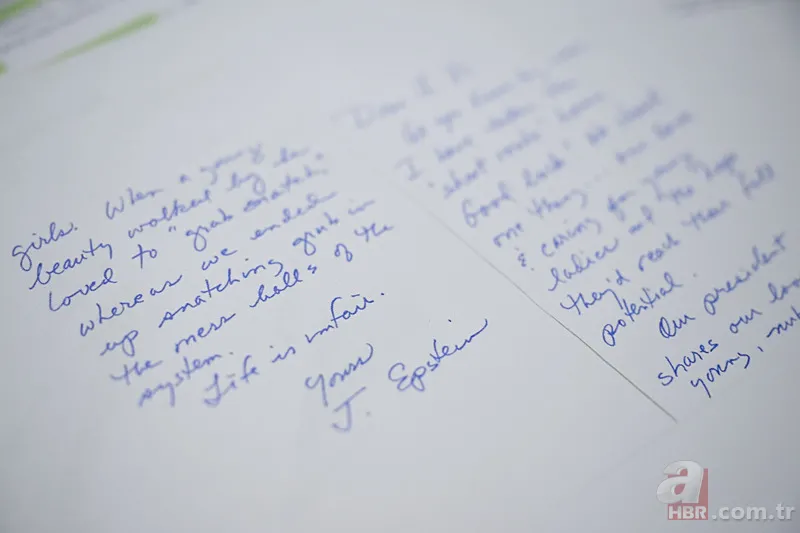 Dear
As you know by now
I have taken the
"short route" home.
Good luck! We shared
one thing... our love
& caring for young
ladies and the hope
they'd reach their full
potential.
Our president
shares our
young,
girls. When a young
beauty walked by he
loved to "grab snatch,"
whereas we ended
up snatching grub in
the mess halls of the
system.
Life is unfair.
Yours
J. Epstein
a
HBR.com.tr